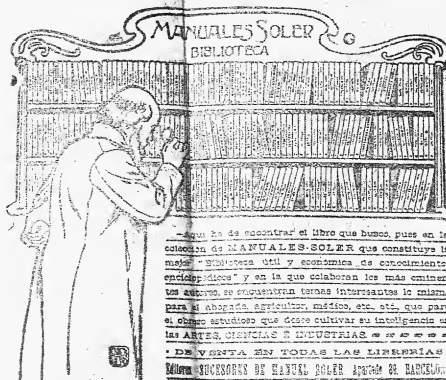 MANUALES SOLER
BIBLIOTECA
—Aquí he de encontrar el libro que busco, pues en la
colección de MANUALES-SOLER que constituye la
mejor "Biblioteca útil y económica de conocimientos
enciclopédicos" y en la que colaboran los más eminen-
tes autores, se encuentran temas interesantes lo mismo
para el abogado, agricultor, médico, etc., etc., que para
el obrero estudioso que desee cultivar su inteligencia en
las ARTES, CIENCIAS É INDUSTRIAS.
• DE VENTA EN TODAS LAS LIBRERÍAS
Editores SUCESORES DE MANUEL SOLER Apartado 89, BARCELONA